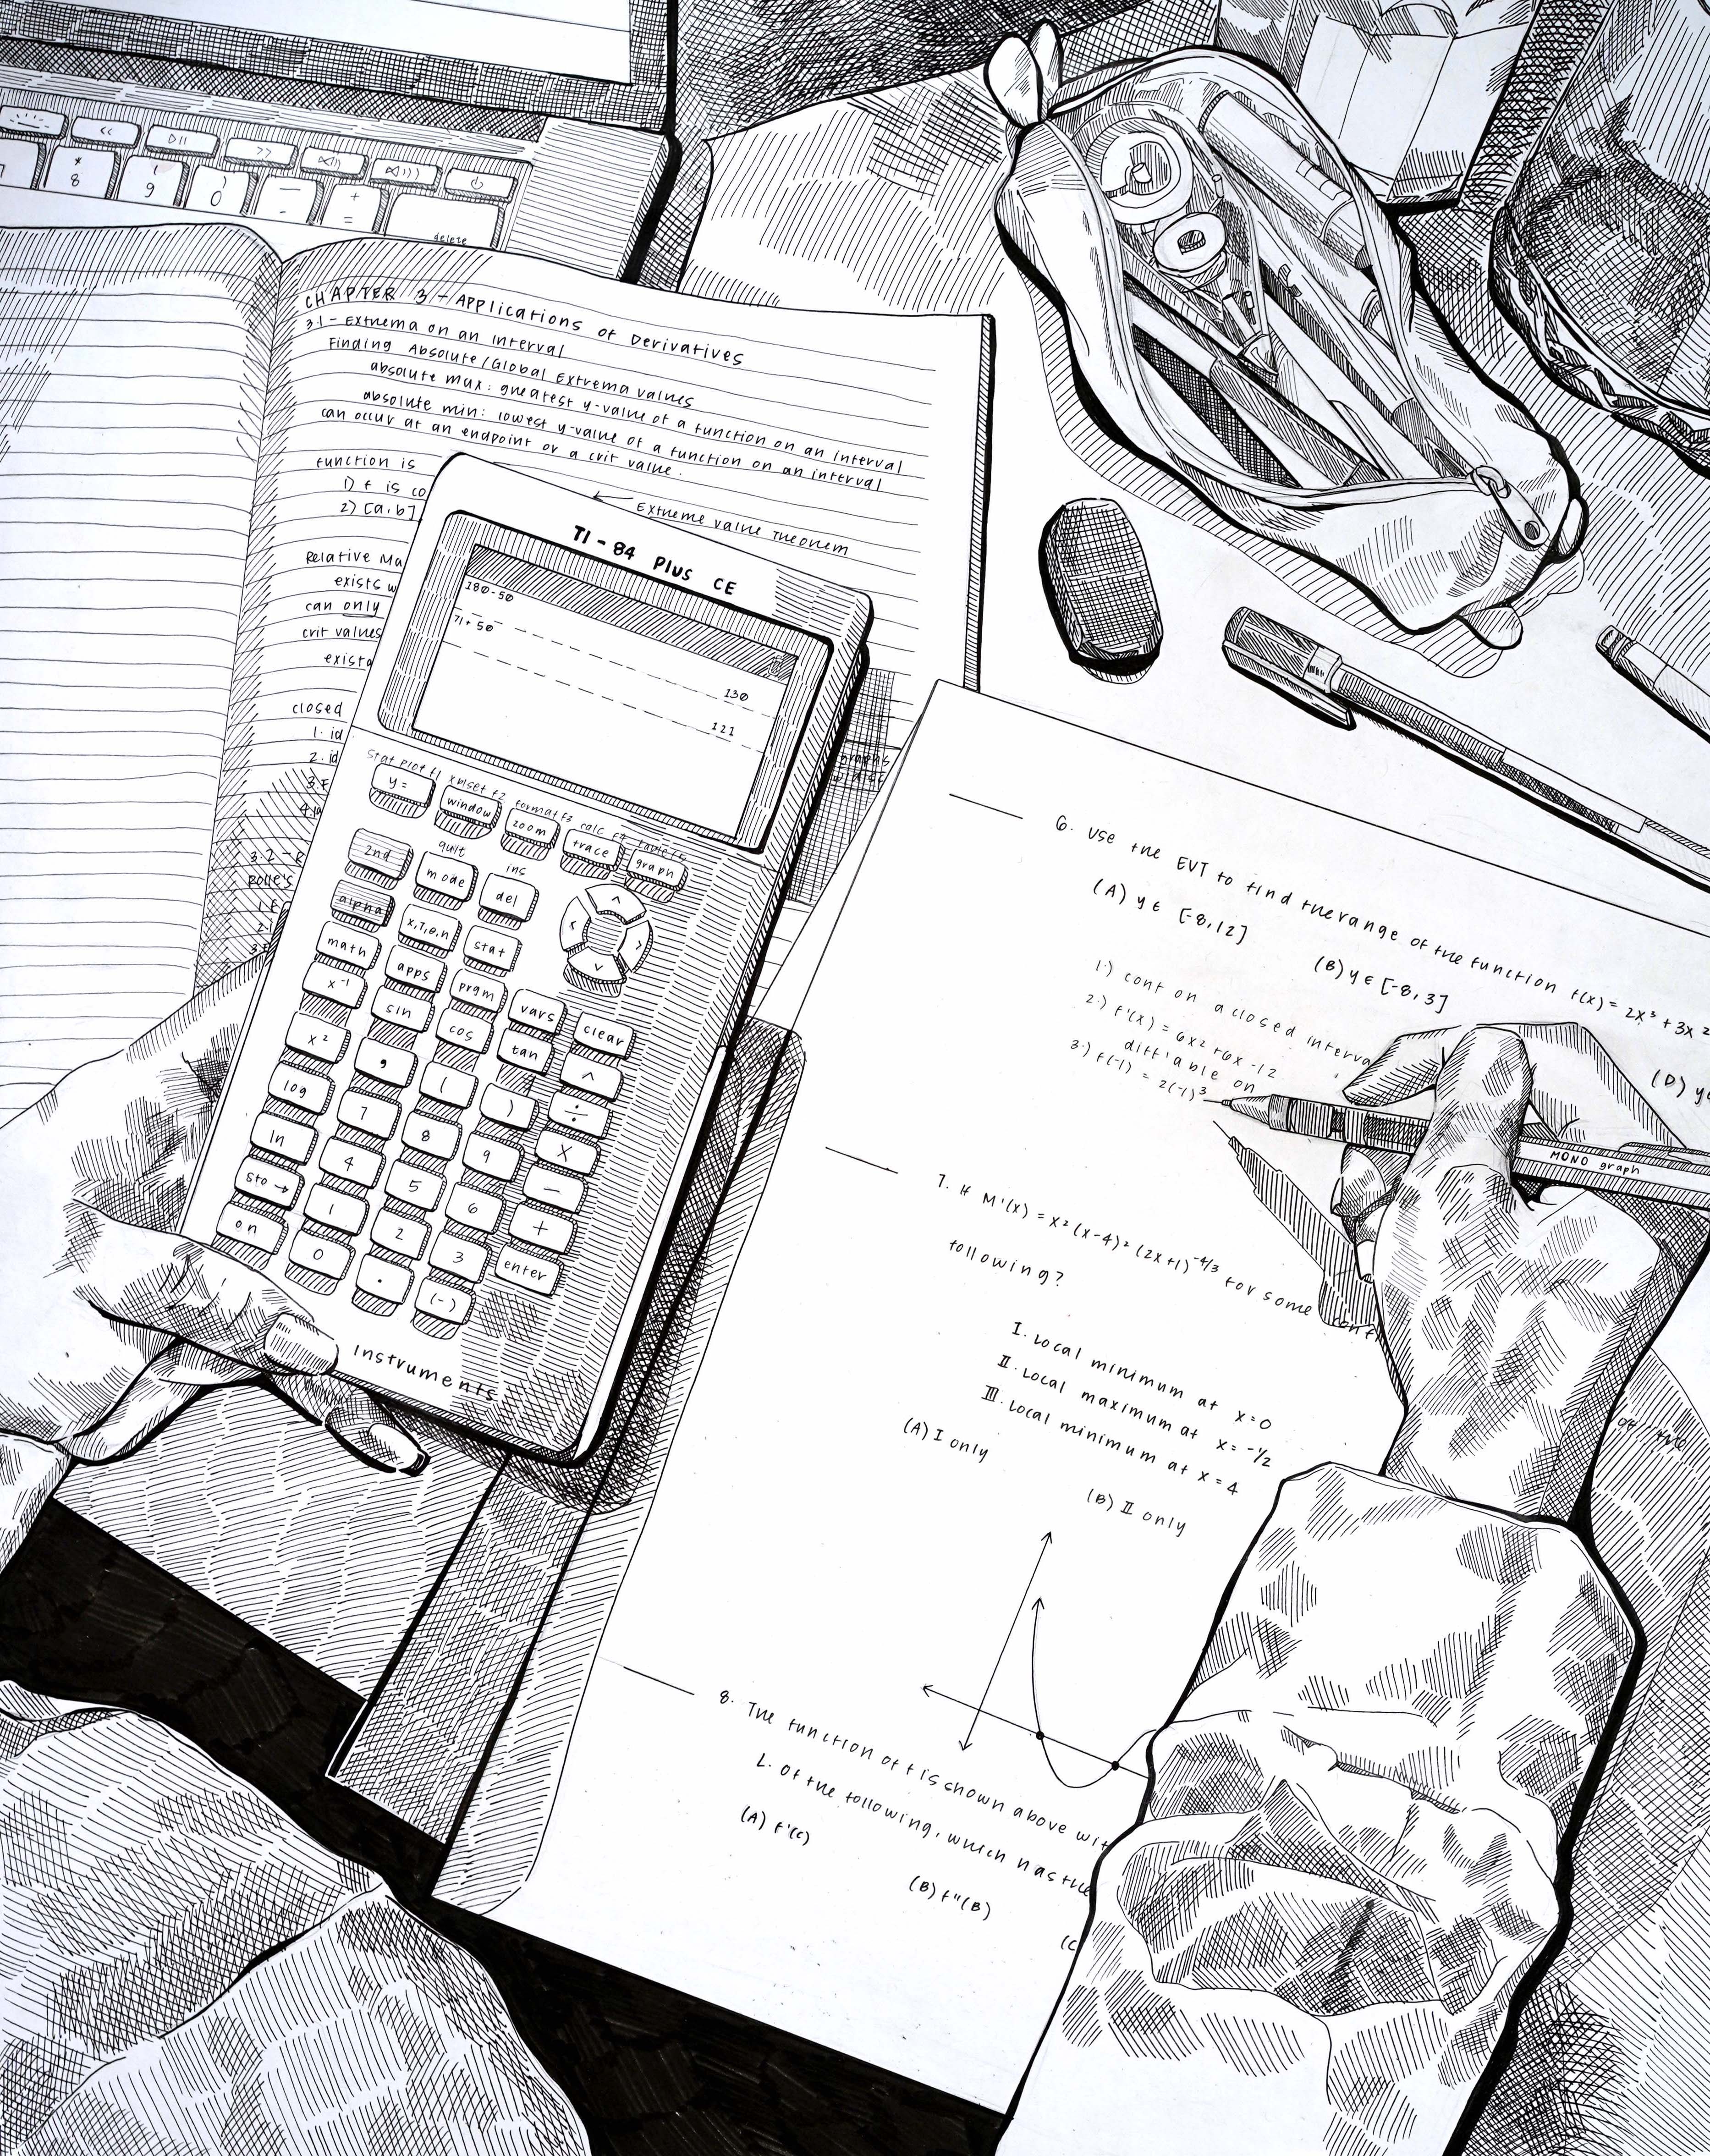 <<
▷II
>>
7
*
8
(
9
)
0
—
-
+
=
delete
CHAPTER 3 - Applications of Derivatives
3.1 - Extrema on an Interval
Finding Absolute/Global Extrema values
absolute max: greatest y-value of a function on an interval
absolute min: lowest y-value of a function on an interval
can occur at an endpoint or a crit value.
function is
1) f is co
2) [a,b]
← Extreme value Theorem
Relative Ma
exists w
can only
crit values
exist a
closed
1. id
2. id
3. F
3.2 - R
Rolle's
graphs
TI-84 Plus CE
180-50
130
71+50
121
stat plot f1 tblset f2 format f3 calc f4 table f5
y= window zoom trace graph
quit ins
2nd mode del
alpha x,T,θ,n stat
math apps prgm vars clear
x⁻¹ sin cos tan ^
x² , ( ) ÷
log 7 8 9 X
ln 4 5 6 —
sto→ 1 2 3 +
on 0 . (-) enter
Instruments
6. Use the EVT to find the range of the function f(x) = 2x³ + 3x²
(A) y ∈ [-8,12]
(B) y ∈ [-8,3]
(D) y ∈
1.) cont on a closed interva
2.) f'(x) = 6x² + 6x - 12
diff'able on
3.) f(-1) = 2(-1)³
MONO graph
7. If M'(x) = x²(x-4)²(2x+1)^-4/3 for some cont
following?
I. Local minimum at x=0
II. Local maximum at x=-1/2
III. Local minimum at x=4
(A) I only
(B) II only
of the
8. The function of f is shown above wit
L. Of the following, which has the
(A) f'(c)
(B) f''(B)
(C